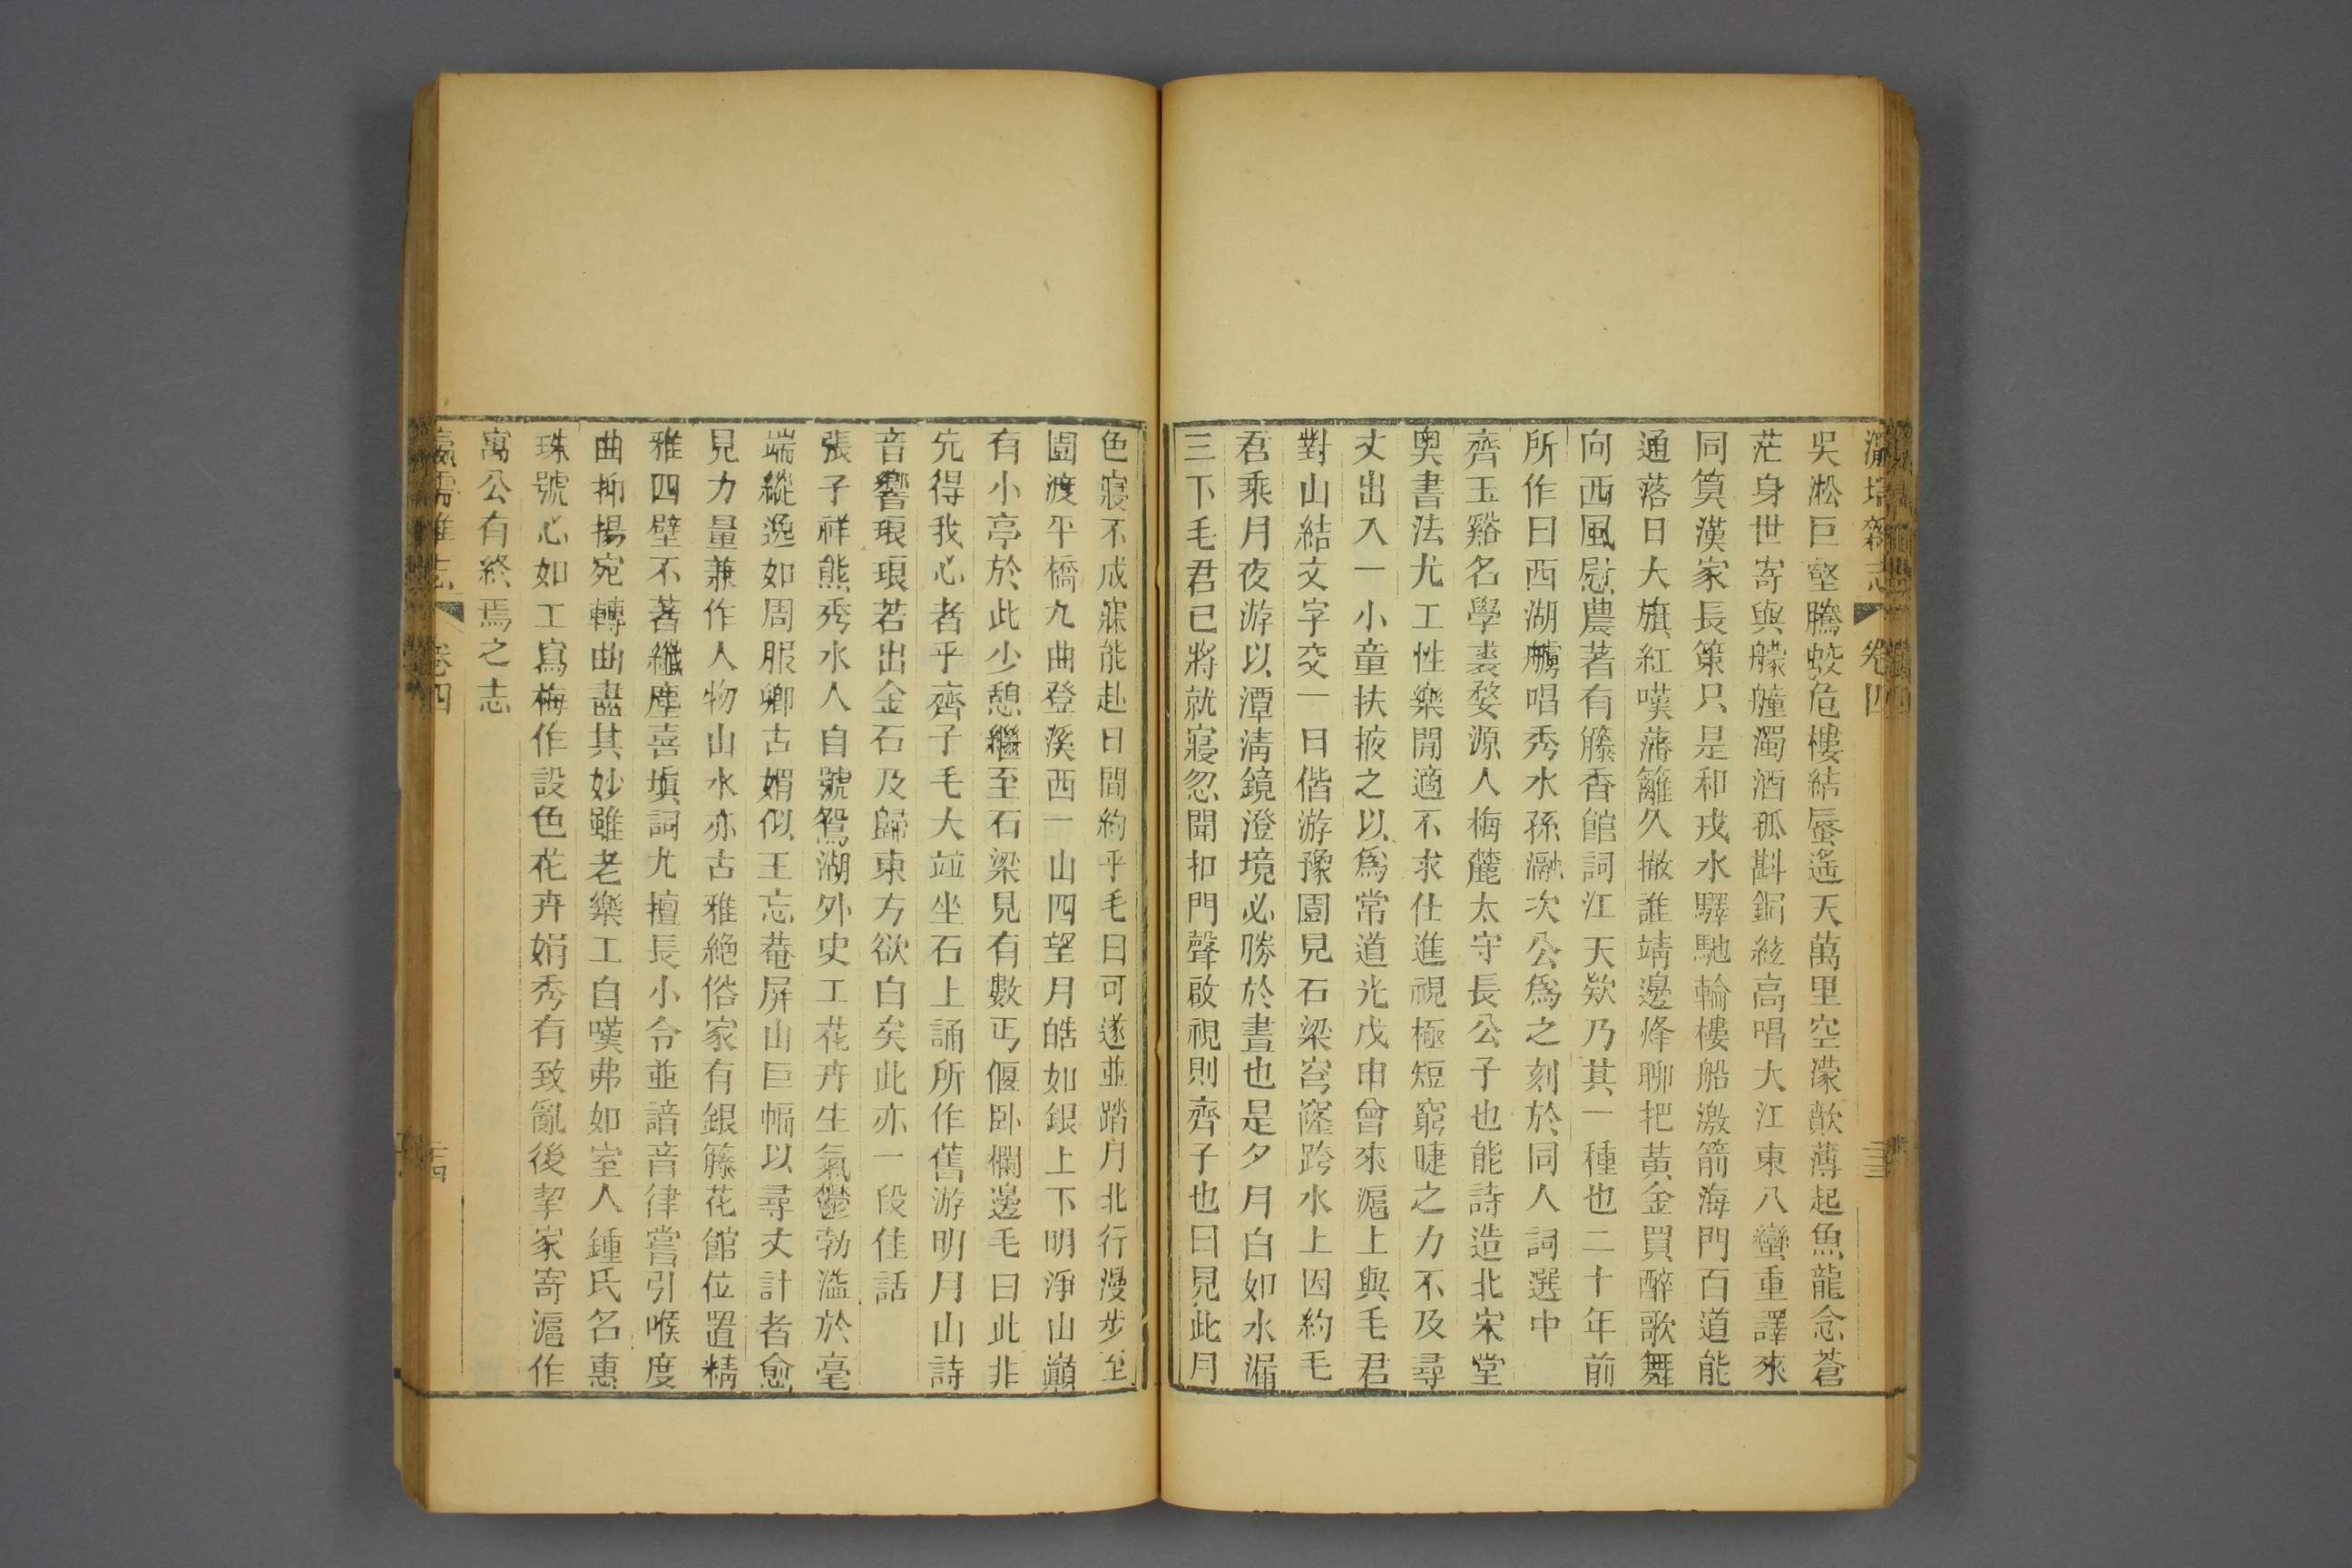 瀛壖雜志 卷四
吳淞巨壑騰蛟危樓結蜃遙天萬里空濛歊薄起魚龍念蒼
茫身世寄與艨艟濁酒孤斟銅絃高唱大江東八蠻重譯來
同筭漢家長策只是和戎水驛馳輪樓船激箭海門百道能
通落日大旗紅嘆藩籬久撤誰靖邊烽聊把黃金買醉歌舞
向西風慰農著有籐香館詞江天欸乃其一種也二十年前
所作曰西湖艣唱秀水孫瀜次公為之刻於同人詞選中
齊玉谿名學裘婺源人梅麓太守長公子也能詩造北宋堂
奧書法尤工性樂閒適不求仕進視極短窮睫之力不及尋
丈出入一小童扶掖之以為常道光戊申曾來滬上與毛君
對山結文字交一日偕游豫園見石梁穹窿跨水上因約毛
君乘月夜游以潭淸鏡澄境必勝於晝也是夕月白如水漏
三下毛君已將就寢忽聞扣門聲啟視則齊子也曰見此月
色寢不成寐能赴日間約乎毛曰可遂並踏月北行漫步至
園渡平橋九曲登溪西一山四望月皓如銀上下明淨山巔
有小亭於此少憩繼至石梁見有數丐偃卧欄邊毛曰此非
先得我心者乎齊子毛大竝坐石上誦所作舊游明月山詩
音響琅琅若出金石及歸東方欲白矣此亦一段佳話
張子祥熊秀水人自號鴛湖外史工花卉生氣鬱勃溢於毫
端縱逸如周服卿古媚似王忘菴屏山巨幅以尋丈計者愈
見力量兼作人物山水亦古雅絕俗家有銀籐花館位置精
雅四壁不著纖塵喜填詞尤擅長小令並諳音律嘗引喉度
曲抑揚宛轉曲盡其妙雖老樂工自嘆弗如室人鍾氏名惠
珠號心如工寫梅作設色花卉娟秀有致亂後挈家寄滬作
寓公有終焉之志
瀛壖雜志 卷四